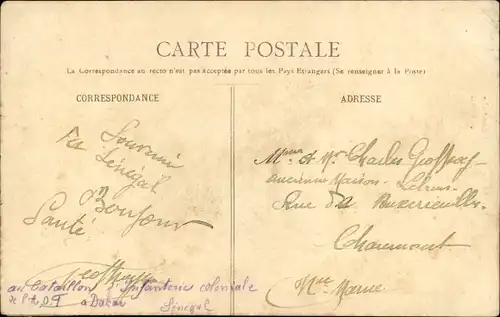 CARTE POSTALE
La Correspondance au recto n'est pas acceptée par tous les Pays Etrangers (Se renseigner à la Poste)
CORRESPONDANCE
Souvenir
du Sénégal
Bonjour
Santé
au bataillon d'Infanterie coloniale
de l'A.O.F. a Dakar
Sénégal
ADRESSE
Mme et Mr Charles Geoffroy
ancienne Maison
Rue de Buxereuilles
Chaumont
Hte Marne